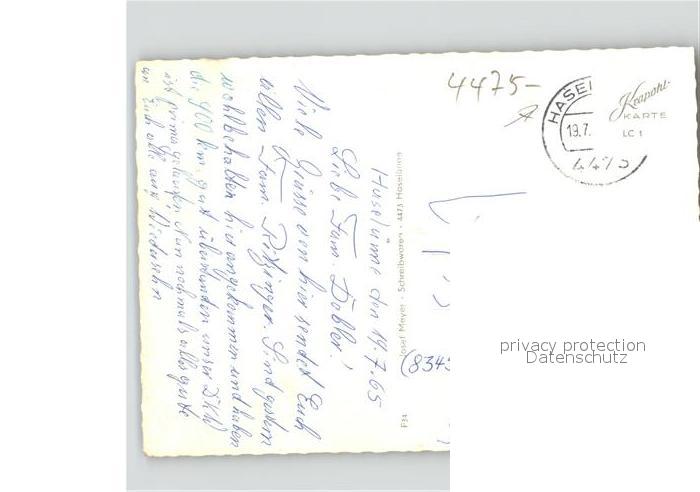 Haselünne den 19.7.65
Liebe Fam. Dobler!
Viele Grüsse von hier sendet Euch
allen Fam. Sind gestern
wohlbehalten hier angekommen und haben
die 900 km. gut überstanden unser DKW
ist prima gelaufen, Nun nochmals alles gute
an Euch alle auf Wiedersehn
Josef Meyer · Schreibwaren · 4473 Haselünne
F34
4475-
HASEL
19.7.
4473
Krapohl-
KARTE
LC 1
(8343
privacy protection
Datenschutz